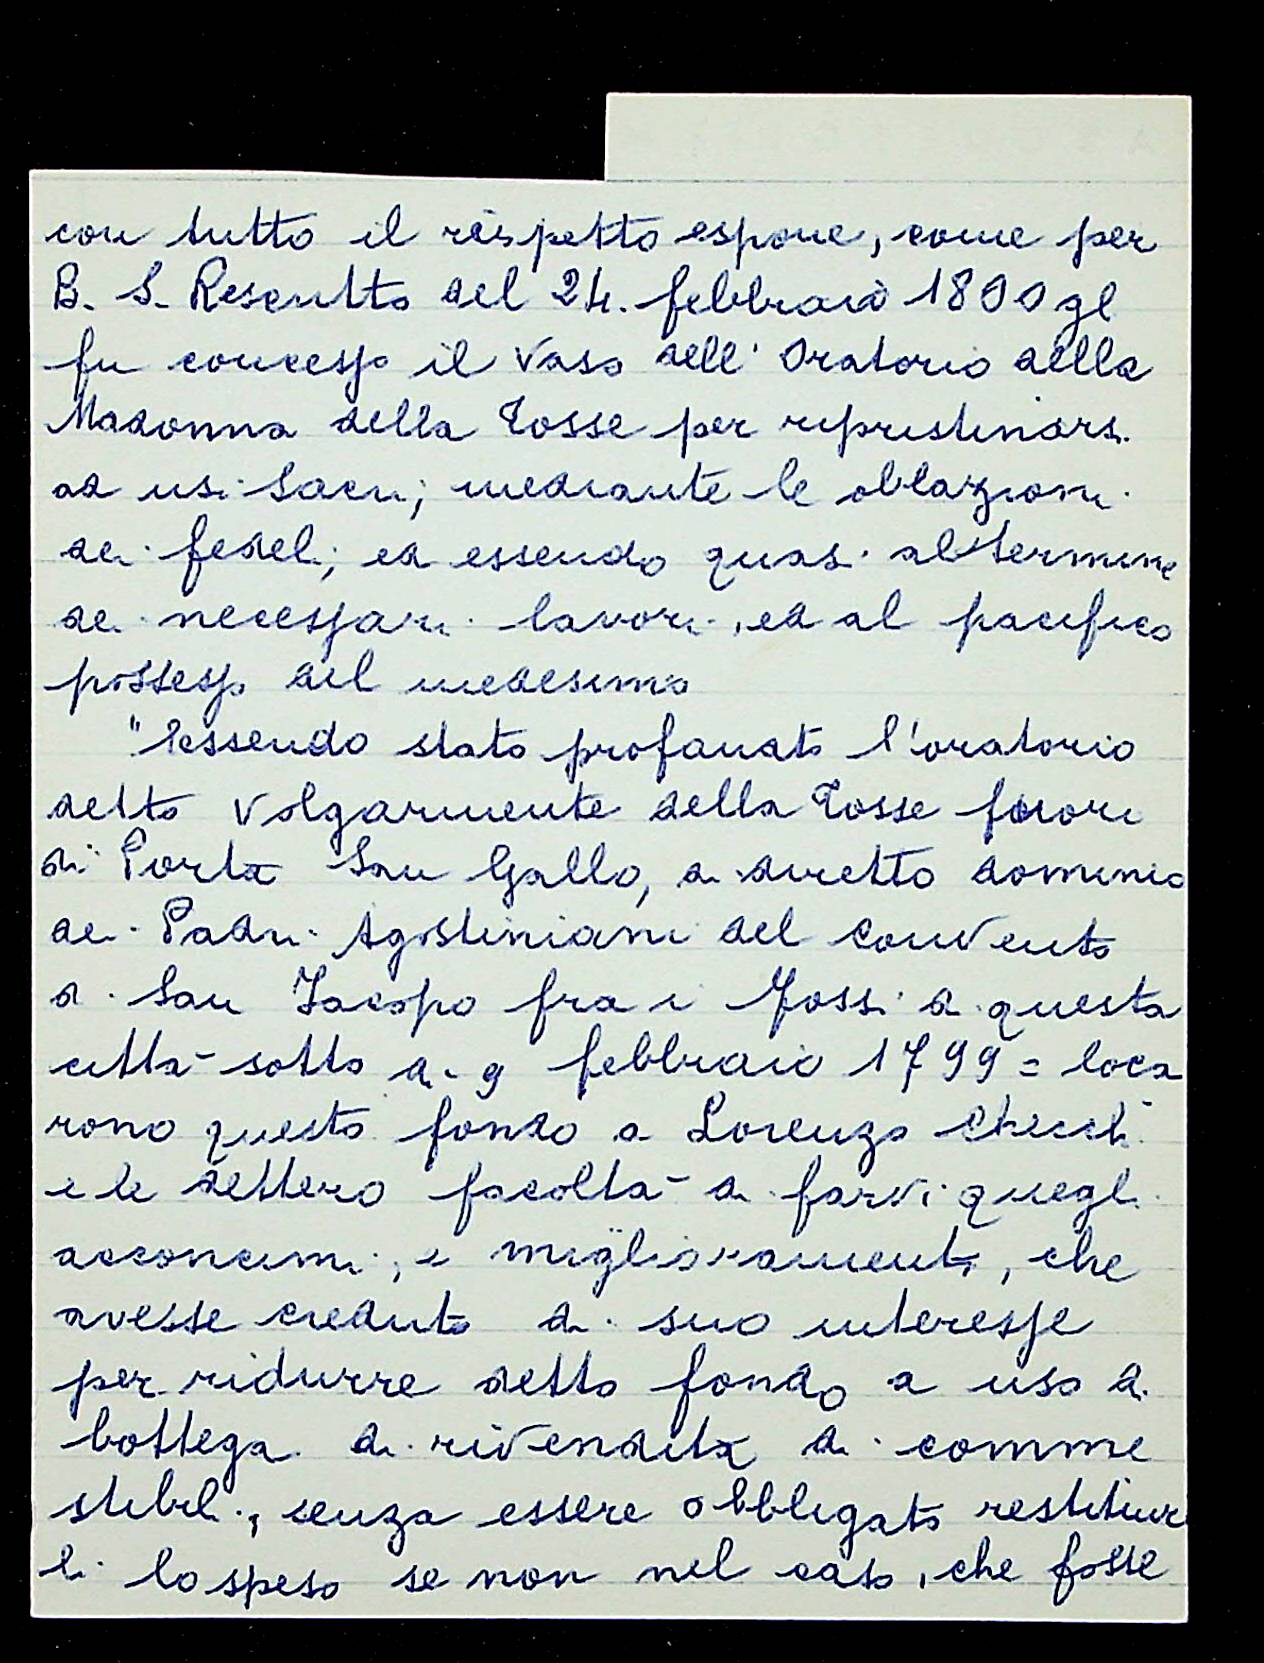 con tutto il rispetto espone, come per
B. S. Rescritto del 24. febbraio 1800 gl
fu concesso il vaso dell' Oratorio della
Madonna della Tosse per ripristinarsi
ad usi Sacri; mediante le oblazioni
dei fedeli; ed essendo quasi al termine
dei necessari lavori, ed al pacifico
possesso del medesimo
"Essendo stato profanato l'oratorio
detto volgarmente della Tosse fuori
di Porta San Gallo, di diretto dominio
dei Padri Agostiniani del Convento
di San Jacopo fra i Fossi di questa
città sotto di 9 febbraio 1799 = loca
rono questo fondo a Lorenzo Checchi
e le dettero facoltà di farvi quegli
acconcimi, e miglioramenti, che
avesse creduto di suo interesse
per ridurre detto fondo a uso di
bottega di rivendita di comme
stibili, senza essere obbligato restituir
li lo speso se non nel caso, che fosse